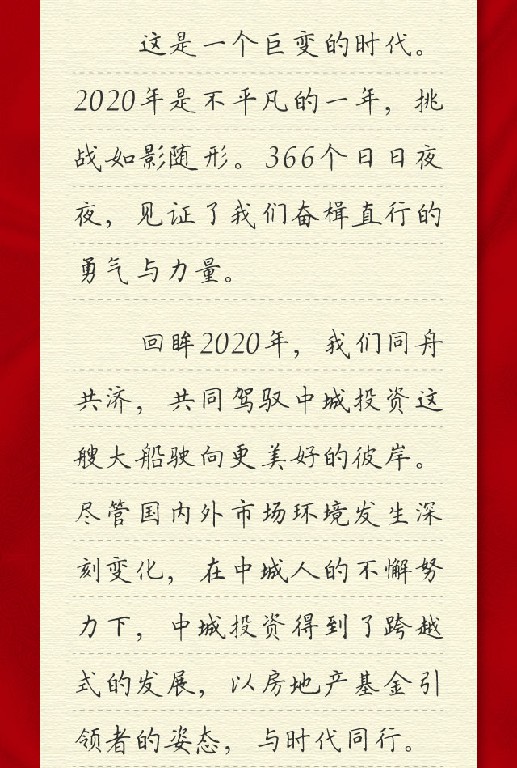 这是一个巨变的时代。
2020年是不平凡的一年，挑
战如影随形。366个日日夜
夜，见证了我们奋楫直行的
勇气与力量。
回眸2020年，我们同舟
共济，共同驾驭中城投资这
艘大船驶向更美好的彼岸。
尽管国内外市场环境发生深
刻变化，在中城人的不懈努
力下，中城投资得到了跨越
式的发展，以房地产基金引
领者的姿态，与时代同行。